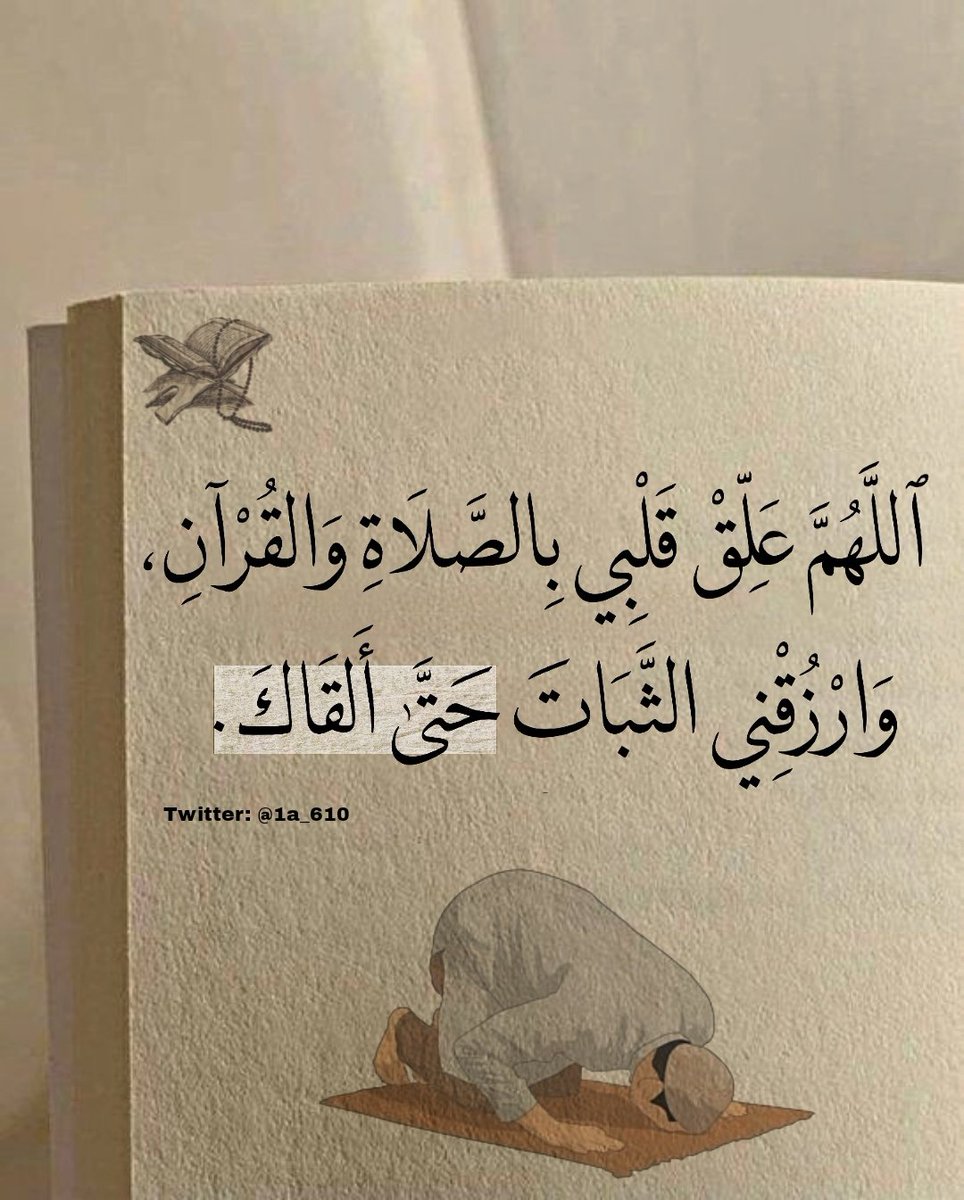 ٱللَّهُمَّ عَلِّقْ قَلْبِي بِالصَّلَاةِ وَالقُرْآنِ،
وَارْزُقْنِي الثَّبَاتَ حَتَّىٰ أَلقَاكَ.
Twitter: @1a_610